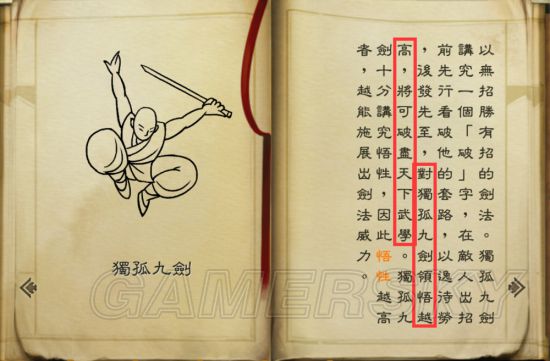 以無招勝有招的劍法。獨孤九劍
講究一個「破」字，在敵人出招
前先行看破他的套路，以逸待勞
，後發先至，對獨孤九劍領悟越
高，將可破盡天下武學。獨孤九
劍十分講究悟性，因此悟性越高
者，越能施展出劍法威力。
獨孤九劍
GAMERSKY